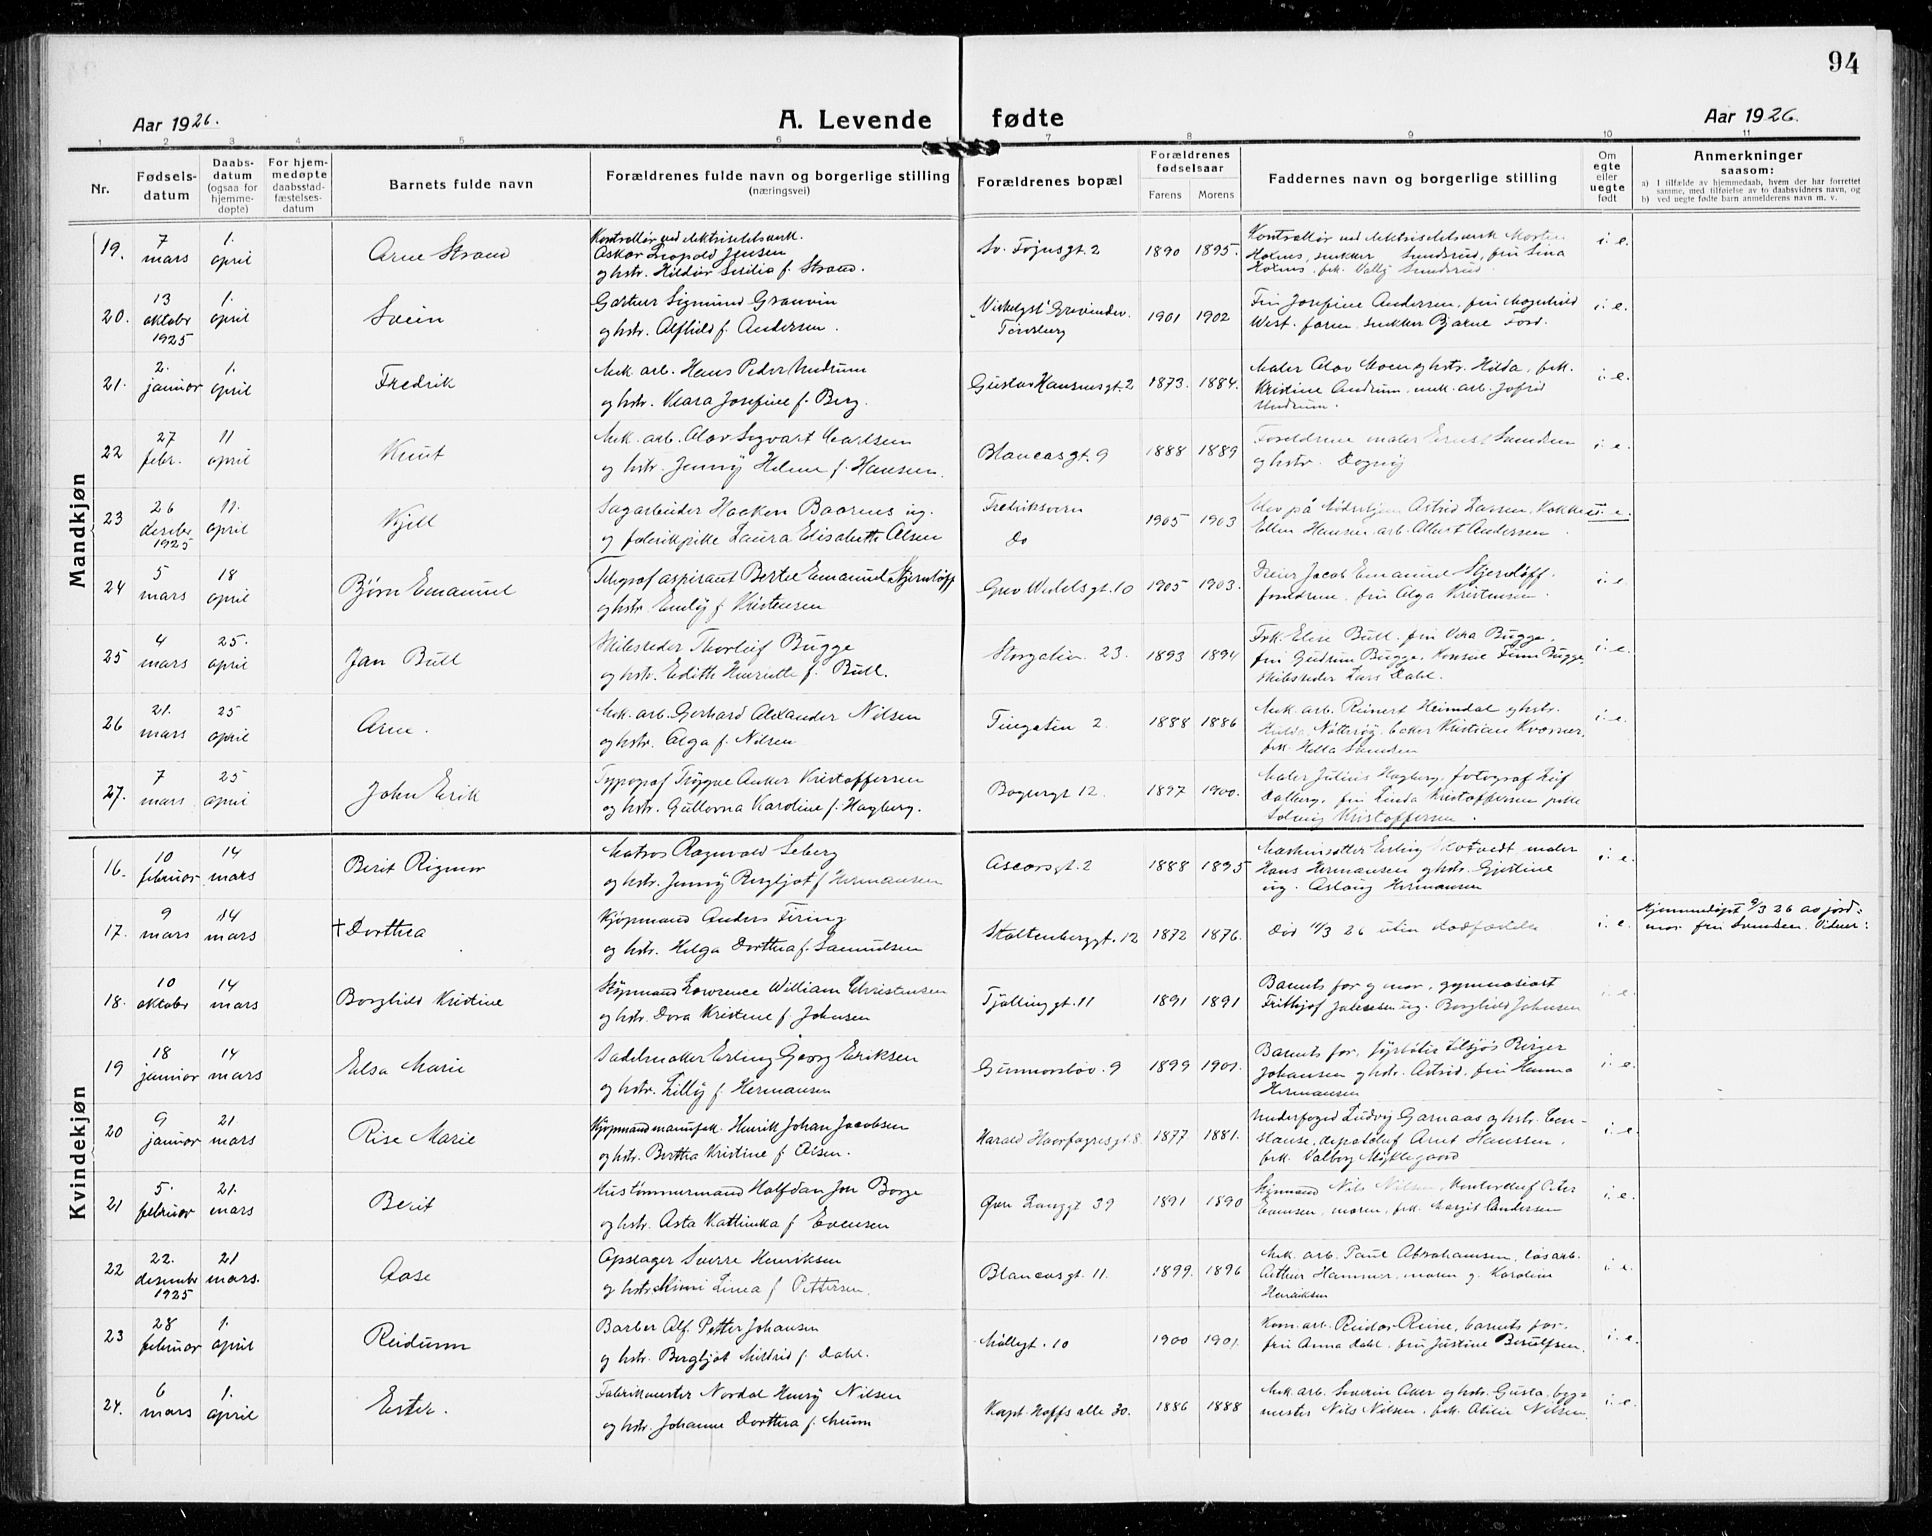 94
Aar 1926.
A. Levende fødte
Aar 1926.
1 2 3 4 5 6 7 8 9 10 11
Nr.
Fødsels-
datum
Daabs-
datum
(ogsaa for
hjemme-
døpte)
For hjem-
medøpte
daabsstad-
fæstelses-
datum
Barnets fulde navn
Forældrenes fulde navn og borgerlige stilling
(næringsvei)
Forældrenes bopæl
Forældrenes
fødselsaar
Farens Morens
Faddernes navn og borgerlige stilling
Om
egte
eller
uegte
født
Anmerkninger
saasom:
a) I tilfælde av hjemmedaab, hvem der har forrettet
samme, med tilføielse av to daabsvidners navn, og
b) ved uegte fødte barn anmelderens navn m. v.
Mandkjøn
19. 7 mars 1. april Arne Strand
Kontrollør ved elektrisitetsverk.
Oskar Leopold Jensen
og hstr. Hildur Secilia f. Strand.
Sv. Føynsgt. 2 1890 1895.
Kontrollør ved elektrisitetsverk Morten
Holmes, snekker Sundsrud, fru Lina
Holmes. frk. Sundsrud.
i. e.
20. 13 oktober 1925 1. april Svein
Gartner Sigmund Granvin
og hstr. Alfhild f. Andersen.
Tønsberg 1901 1902
Fru Josefine Andersen, fru Magnhild
West. faren. snekker Bjarne
i. e.
21. 2. januar 1. april Fredrik
Mek. arb. Hans Peder Undrum
og hstr. Klara Josefine f. Berg.
Gustav Hansensgt. 2 1873. 1884.
Maler Olav Moen og hstr. Hilda, frk.
Kristine Undrum. mek. arb. Jofrid
Undrum.
i. e.
22 27 febr. 11 april Knut
Mek. arb. Olav Sigvart Carlsen
og hstr. Jenny Helene f. Hansen.
Blancasgt. 9 1888 1889
Foreldrene maler Ernst Svendsen
og hstr. Dagny
i. e.
23 26 desebr 1925 11. april Kjell
Sagarbeider Haakon Baarnes ug.
og fabrikpike Laura Elisabeth Olsen
Fredriksvern
Do
1905 1903
Elev på Astrid Larsen, Kokke
Ellen Hansen arb. Albert Andersen.
u. e.
24 5 mars 18 april Bjørn Emanuel
Telegraf aspirant Bertel Emanuel Stjernløff
og hstr. Emly f. Kristensen
Grev Wedelsgt. 10 1905 1903.
Feier Jacob Emanuel Stjernløff.
foreldrene, fru Olga Kristensen.
i. e.
25 4 mars 25. april Jan Bull
Skibsreder Thorleif Bugge
og hstr. Edith Henriette f. Bull.
Storgaten. 23. 1893 1894
Frk. Elise Bull. fru Vera Bugge.
fru Gudrun Bugge, Konsul Finn Bugge,
skibsreder Lars Dahl.
i. e.
26 21. mars 25 april Arne.
Mek. arb. Gerhard Alexander Nilsen
og hstr. Olga f. Nilsen
Tingaten 2. 1888 1886
Mek. arb. Reinert Heimdal og hstr.
Hilda Nøtterøy. baker Kristian
frk. Hella Svendsen
i. e.
27. 7 mars 25 april John Erik
Typograf Trygve Anker Kristoffersen
og hstr. Gullovna Karoline f. Hagberg.
Bøgergt 12. 1897 1900.
Maler Julius Hagberg, fotograf Leif
Dalberg, fru Linda Kristoffersen pike
Solveig Kristoffersen.
i. e.
Kvindekjøn
16. 10 februar 14 mars Berit Rigmor
Matros Ragnvald Seberg
og hstr. Jenny Bergljot f. Hermansen
Ascersgt. 2 1888 1895
Erling maler
Hans Hermansen og hstr.
ug. Aslaug Hermansen
i. e.
17. 9 mars 14 mars † Dorthea
Kjøpmand Anders Firing
og hstr. Helga Dorthea f. Samuelsen
Stoltenberggt. 12 1872 1876.
Død 11/3 26 uten stadfæstelse
i. e.
Hjemmedøpt 9/3 26 av jord:
mor fru Svendsen. Vidner:
18. 10 oktober 14 mars Borghild Kristine
Kjøpmand Lawrence William Christensen
og hstr. Dora Kristine f. Johnsen
Tjøllinggt. 11 1891 1891
Barnets far og mor, gymnasiast
Frithjof ug. Borghild Johnsen
i. e.
19 18 januar 14 mars Elsa Marie
Sadelmaker Erling Georg Eriksen
og hstr. Lilly f. Hermansen
Gunnarsbøv. 9 1899 1901.
Barnets far, fyrbøter Birger
Johansen og hstr. Astrid. fru Hanna
Hermansen
i. e.
20 9 januar 21 mars Rise Marie
Kjøpmand manufak. Henrik Johan Jacobsen
og hstr. Berthea Kristine f. Olsen.
Harald Haarfagresgt. 8. 1877 1881.
Underfoged Ludvig Garnaas og hstr. Con-
stanse, Arnt Hanssen.
frk. Valborg Myklegaard
i. e.
21 5. februar 21. mars Berit
Hustømmermand Halfdan Jon Borge
og hstr. Asta Kattinka f. Evensen
Øvre Langgt 39 1891 1890
Kjøpmand Nils Nilsen, Peter
Evensen, moren, frk. Margit Andersen
i. e.
22 22. desembr 1925 21 mars. Aase
Opslager Sverre Henriksen
og hstr. Mimi Linea f. Pettersen.
Blancasgt. 11. 1899. 1896
Mek. arb. Paul Abrahamsen, løsarb.
Arthur Hammer, moren og Karoline
Henriksen
i. e.
23 28 februar 1. april Reidunn
Barber Alf Petter Johansen
og hstr. Bergljot Mildrid f. Dahl.
Møllegt. 10 1900 1901.
Kom. arb. Reidar Reine, barnets far.
fru Anna Dahl. fru Justine Berulfsen.
i. e.
24. 6 mars 1. april Ester.
Fabrikmester Nordal Henry Nilsen
og hstr. Johanne Dorthea f. Meum
Kapt. Hoffs alle 30. 1886 1888
Mek. arb. Severin Aker og hstr. Gusta, byg-
mester Nils Nilsen, frk. Otilie Nilsen.
i. e.